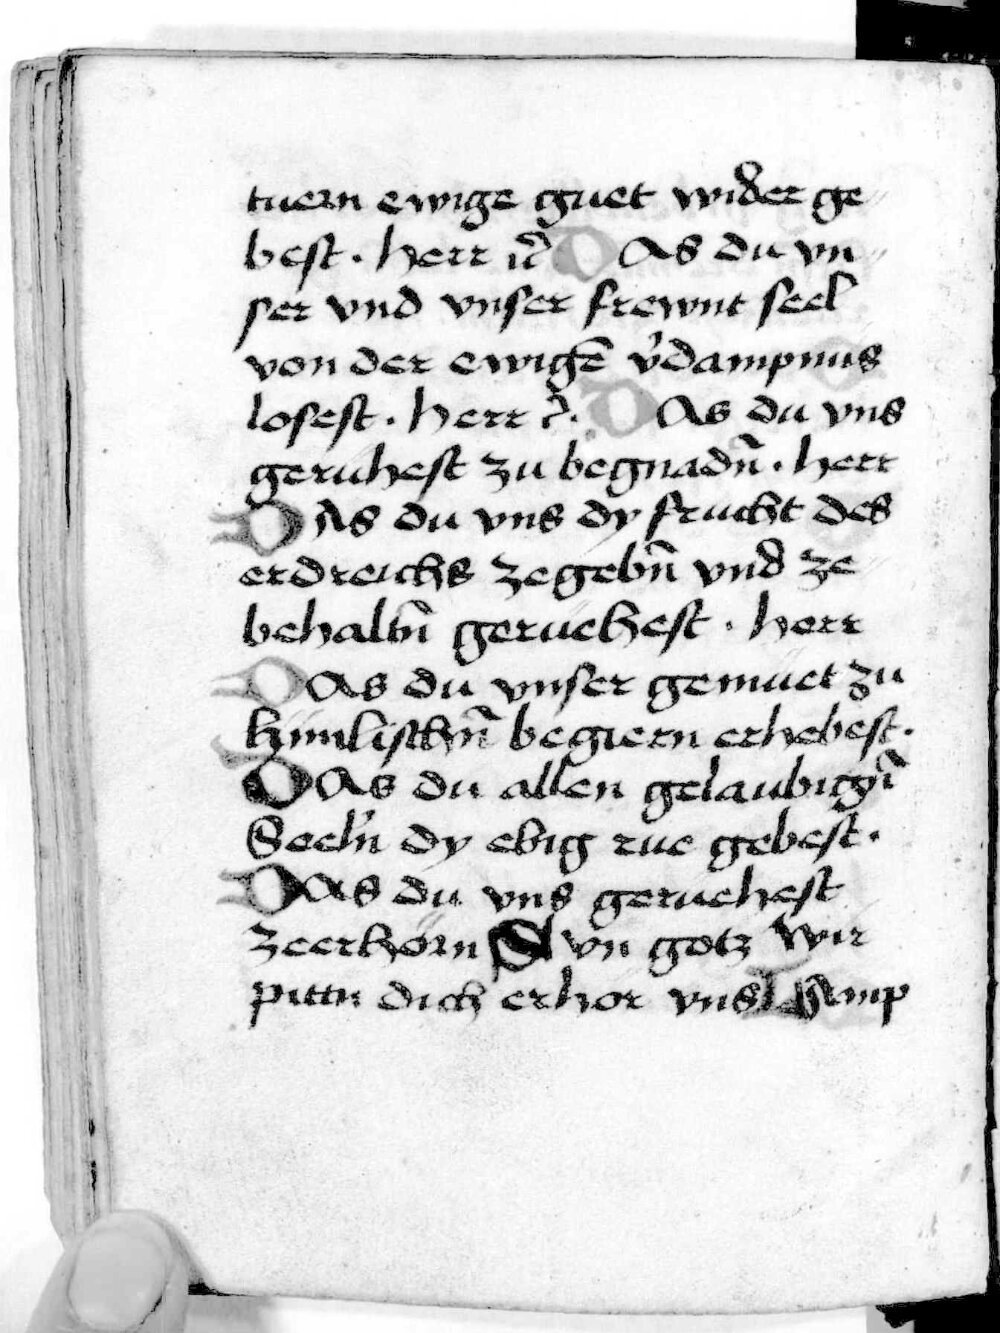 tuern ewige guet wider ge
best. herr w̃ DAs du vn
ser vnd vnser frewnt seel
von der ewigē v̉dampnus
losest. herr w̃. DAs du vns
geruhest zu begnadñ. herr
DAs du vns dy frucht des
erdreichs zegebñ vnd ze
behaltñ geruehest. herr
DAs du vnser gemuet zu
himlischñ begiern erhebest.
DAs du allen gelaubigñ
Seelñ dy ebig rue gebest.
DAs du vns geruehest
zeerhorn Svn gotz Wir
pittn dich erhor vns Lamp